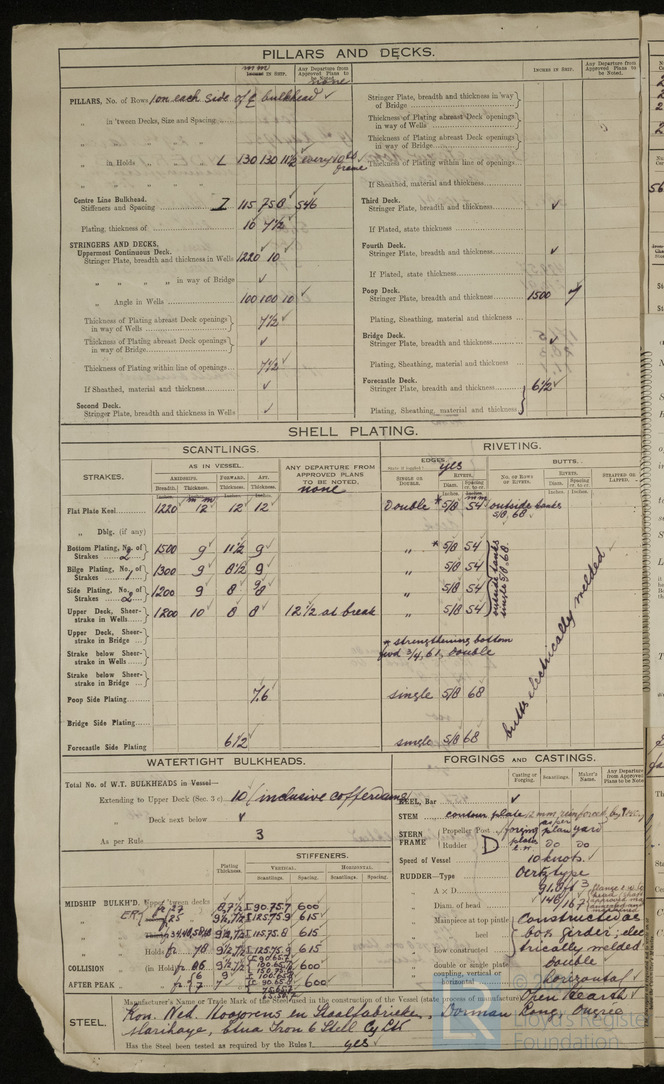 PILLARS AND DECKS.
mm
Inches IN SHIP.
Any Departure from Approved Plans to be Noted.
none
PILLARS, No. of Rows 1 on each side of ₵ bulkhead ✓
„ in 'tween Decks, Size and Spacing
„ in Holds „ L 130 130 11½ every 10th frame
Centre Line Bulkhead.
Stiffeners and Spacing I 115 75 8 546
Plating, thickness of 10 7½
STRINGERS AND DECKS.
Uppermost Continuous Deck.
Stringer Plate, breadth and thickness in Wells 1220 10
„ „ „ „ in way of Bridge ✓
„ Angle in Wells 100 100 10 ✓
Thickness of Plating abreast Deck openings in way of Wells 7½
Thickness of Plating abreast Deck openings in way of Bridge ✓
Thickness of Plating within line of openings 7½
If Sheathed, material and thickness ✓
Second Deck.
Stringer Plate, breadth and thickness in Wells ✓
INCHES IN SHIP.
Any Departure from Approved Plans to be Noted.
Stringer Plate, breadth and thickness in way of Bridge
Thickness of Plating abreast Deck openings in way of Wells
Thickness of Plating abreast Deck openings in way of Bridge
Thickness of Plating within line of openings
If Sheathed, material and thickness
Third Deck.
Stringer Plate, breadth and thickness ✓
If Plated, state thickness
Fourth Deck.
Stringer Plate, breadth and thickness ✓
If Plated, state thickness
Poop Deck.
Stringer Plate, breadth and thickness 1500 7
Plating, Sheathing, material and thickness
Bridge Deck.
Stringer Plate, breadth and thickness ✓
Plating, Sheathing, material and thickness
Forecastle Deck.
Stringer Plate, breadth and thickness 6½ ✓
Plating, Sheathing, material and thickness
SHELL PLATING.
SCANTLINGS.
RIVETING.
STRAKES.
AS IN VESSEL.
AMIDSHIPS. FORWARD. AFT.
Breadth. Thickness. Thickness. Thickness.
mm
ANY DEPARTURE FROM APPROVED PLANS TO BE NOTED.
none
EDGES. yes
SINGLE OR DOUBLE.
RIVETS.
Diam. Spacing cr. to cr.
BUTTS.
No. of Rows of Rivets.
RIVETS.
Diam. Spacing cr. to cr.
STRAPPED OR LAPPED.
Flat Plate Keel 1220 12 12 12 Double * 5/8 54 outside tanks 5/8, 68
„ Dblg. (if any)
Bottom Plating, No. of Strakes 2 1500 9 11½ 9 „ * 5/8 54
Bilge Plating, No. of Strakes 1 1300 9 8½ 9 „ 5/8 54
Side Plating, No. of Strakes 2 1200 9 8 9/8 „ 5/8 54
outside tanks single 5/8 68.
Upper Deck, Sheerstrake in Wells 1200 10 8 8 12½ at break „ 5/8 54
Upper Deck, Sheerstrake in Bridge
* strengthening bottom fwd 3/4, 61, double
Strake below Sheerstrake in Wells
Strake below Sheerstrake in Bridge
Poop Side Plating 7.6 single 5/8 68
Bridge Side Plating
Forecastle Side Plating 6½ single 5/8 68
butts electrically welded
WATERTIGHT BULKHEADS.
Total No. of W.T. BULKHEADS in Vessel—
Extending to Upper Deck (Sec. 3 c) 10 (inclusive cofferdams)
„ Deck next below ✓
As per Rule 3
Plating Thickness.
STIFFENERS.
VERTICAL. HORIZONTAL.
Scantlings. Spacing. Scantlings. Spacing.
MIDSHIP BULKH'D. Upper 'tween decks fr 27 8, 7½ I 90.75.7 600
ER 25 9½, 7½ I 125.75.9 615
9½, 7½ I 115.75.8 615
Holds fr 78 9½, 7½ I 125.75.9 615
COLLISION (in Hold) fr 86 600
AFTER PEAK „ fr 7 7 600
FORGINGS AND CASTINGS.
Casting or Forging. Scantlings. Maker's Name. Any Departure from Approved Plans to be Noted
KEEL, Bar ✓
STEM contour plate 12 mm, reinforced by
STERN FRAME
Propeller Post forging as per plan yard
Rudder „ Do Do
Speed of Vessel 10 knots.
RUDDER—Type Oertz type
A × D
Diam. of head 148 167
Mainpiece at top pintle constructed as
„ heel box girder, elec
Low constructed trically welded
„ double or single plate double
coupling, vertical or horizontal horizontal
STEEL.
Manufacturer's Name or Trade Mark of the Steel used in the construction of the Vessel (state process of manufacture) Open Hearth
Kon. Ned. Hoogovens en Staalfabrieken, Dorman Long, Ougrée
Marihaye, Etna Iron & Steel Cy Ltd
Has the Steel been tested as required by the Rules? yes
LR
Lloyd's Register
Foundation